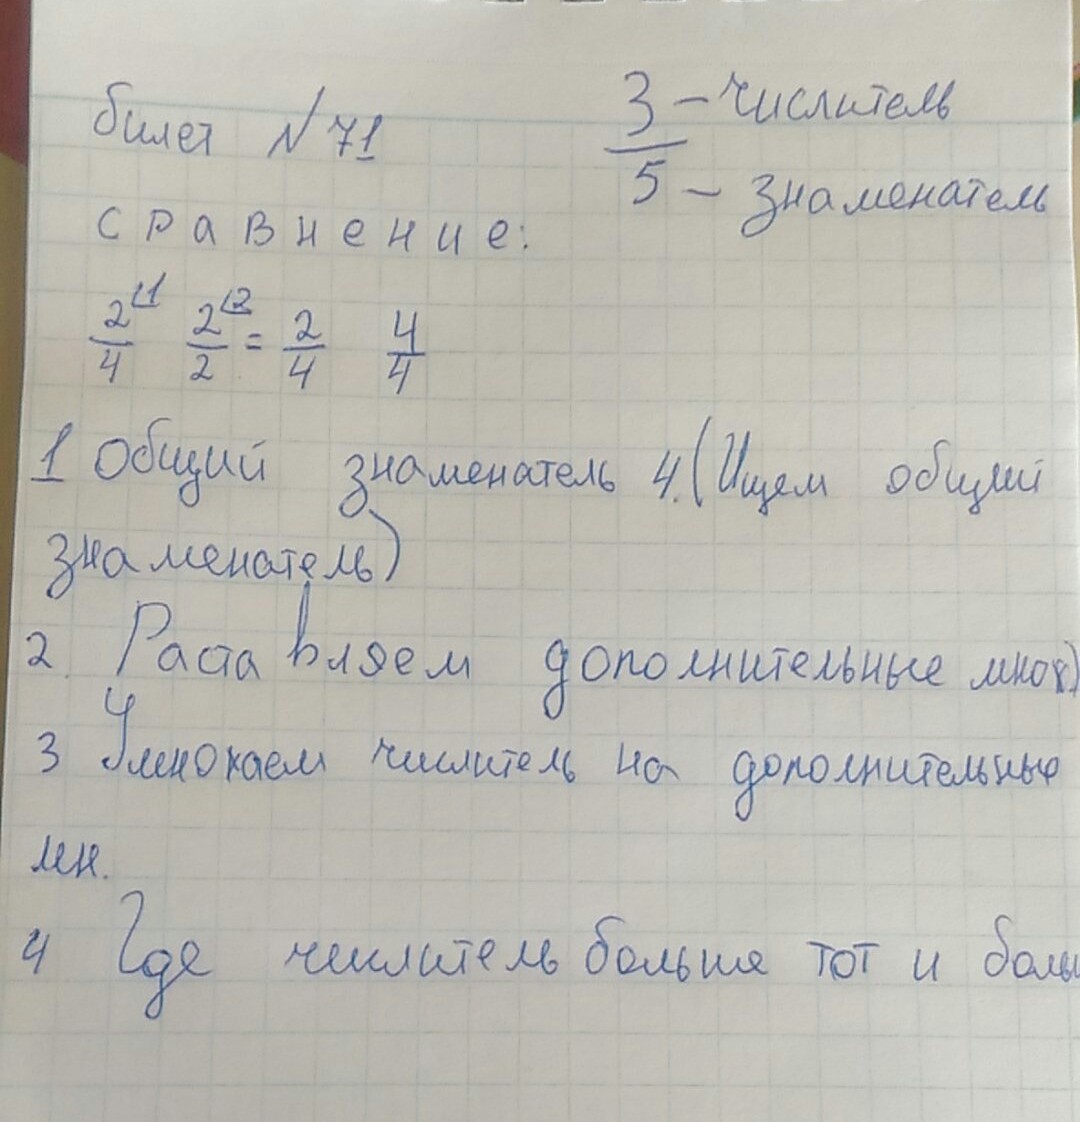 билет №71
3 – числитель
5 – знаменатель
сравнение:
2/4 ⌊1 2/2 ⌊2 = 2/4 4/4
1 Общий знаменатель 4. (Ищем общий
знаменатель)
2. Раставляем дополнительные множ)
3 Умножаем числитель на дополнительные
мн.
4 Где числитель больше тот и боль